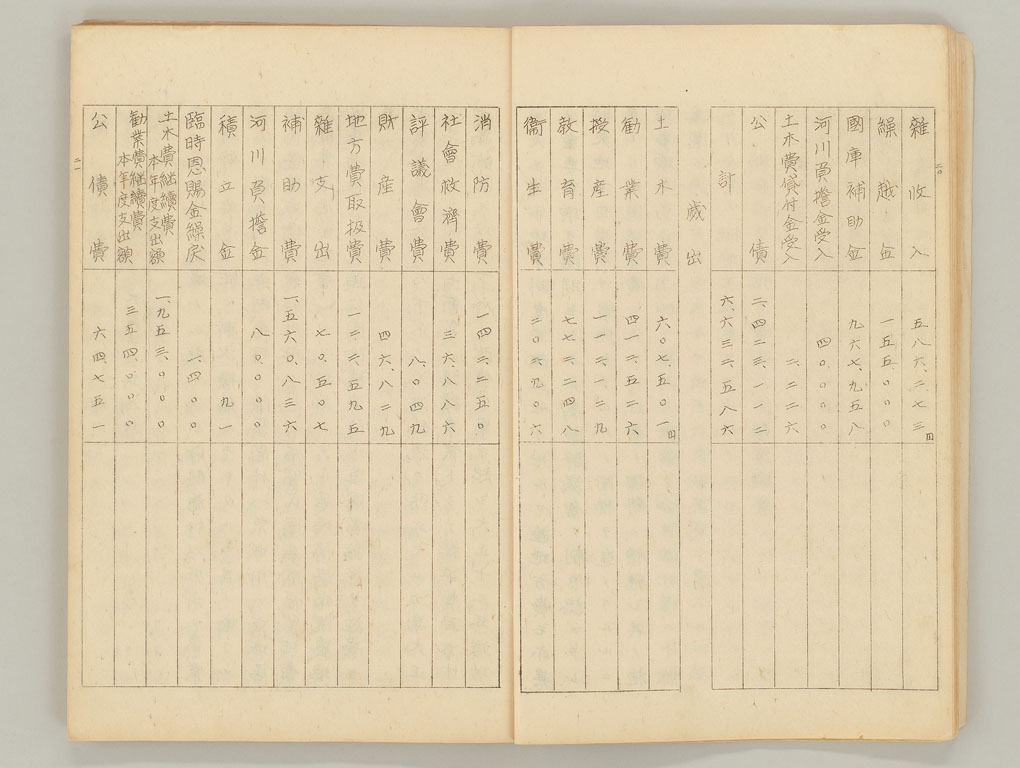 二〇
雑收入 五八六、二七三円
繰越金 一五五、〇〇〇
國庫補助金 九六七、九五八
河川負擔金受入 四〇、〇〇〇
土木費貸付金受入 二、二二六
公債 二、四二三、一一二
計 六、六三二、五八六
歳出
土木費 六〇七、五〇一円
勧業費 四一二、五二六
授産費 一一二、一二九
教育費 七七二、二四八
衞生費 二〇二、九〇六
消防費 一四二、二五〇
社會救濟費 三六、八八六
評議會費 八、〇四九
財産費 四六、八二九
地方費取扱費 一二二、五九五
雑支出 七〇、五〇七
補助費 一、五六〇、八三六
河川負擔金 八〇、〇〇〇
積立金 九一
臨時恩賜金繰戻 一、四〇〇
土木費継續費
本年度支出額 一、九五三、〇〇〇
勧業費継續費
本年度支出額 三五四、〇〇〇
公債費 六四、七五一
二一